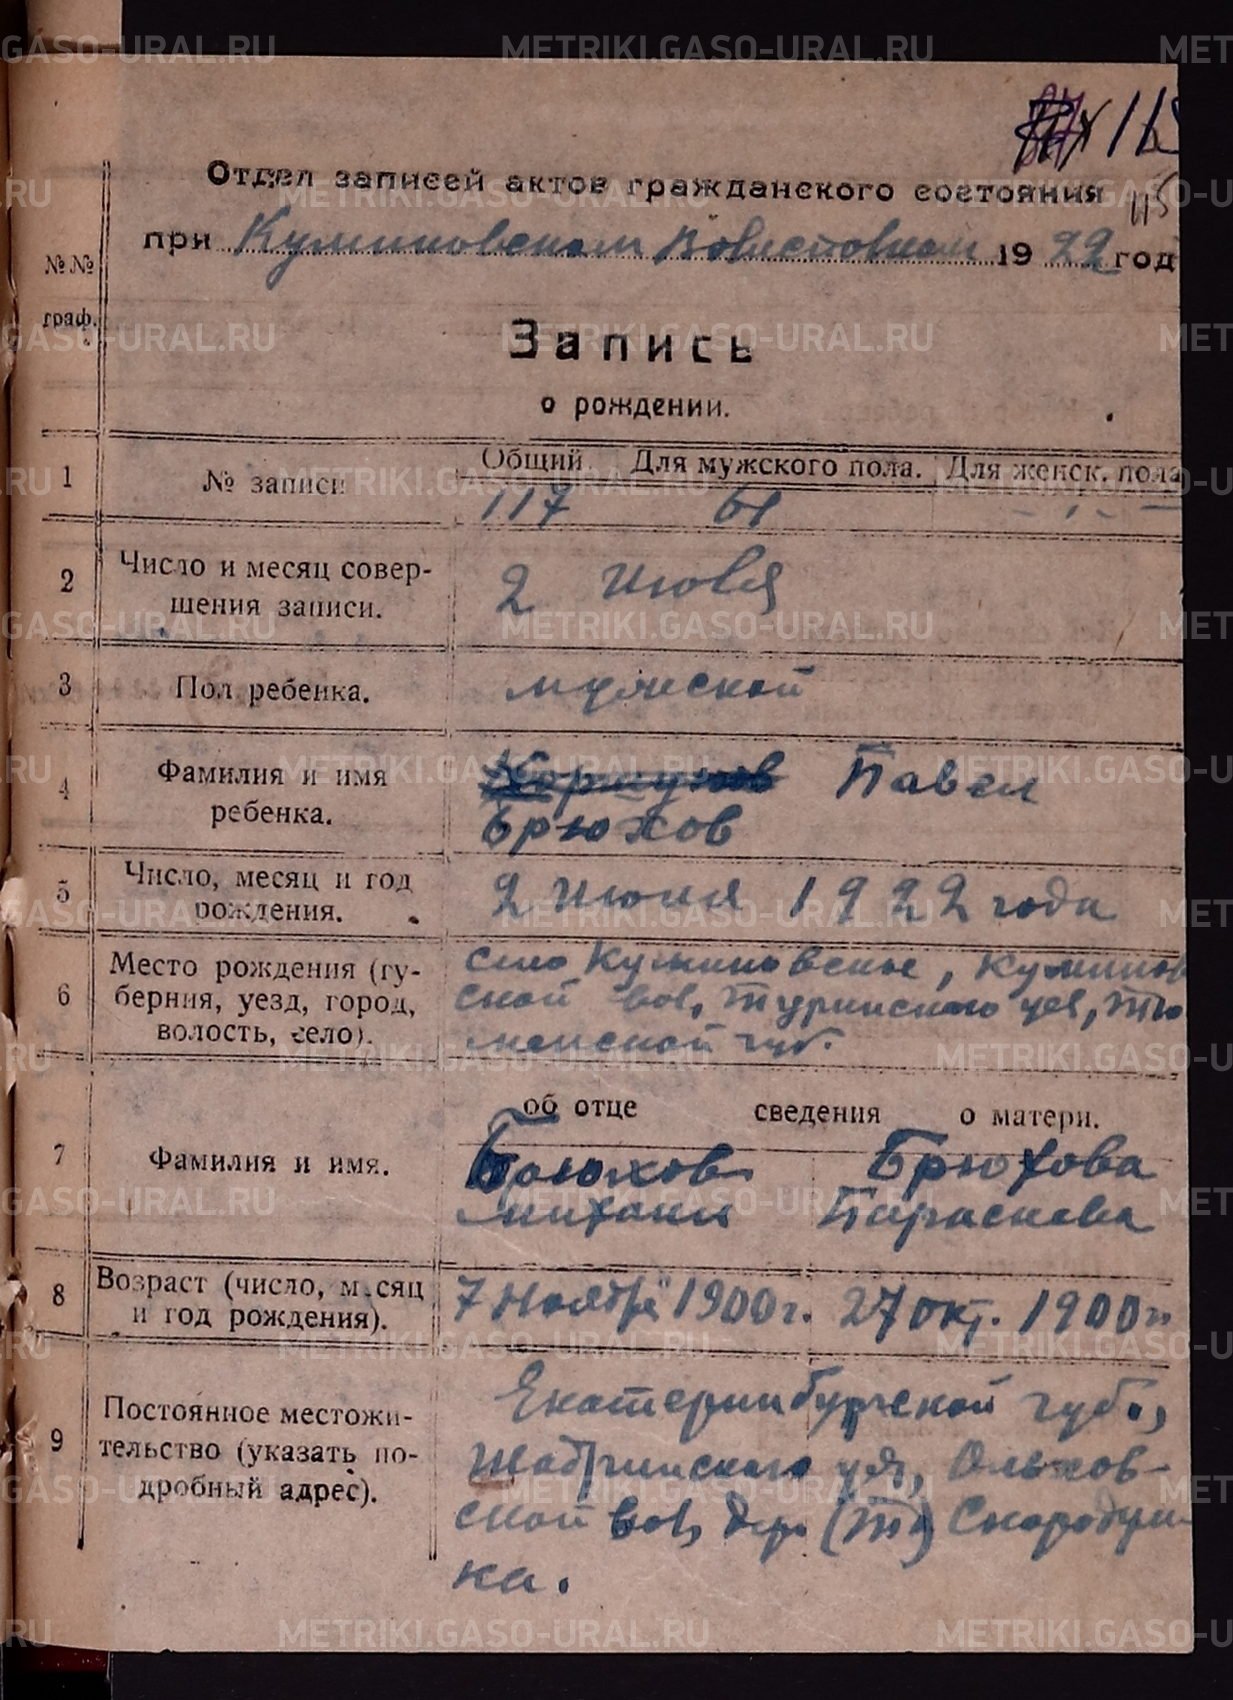 115
115
Отдел записей актов гражданского состояния
при Куминовском Волистовком 1922 год
№№
граф.
Запись
о рождении.
1 № записи Общий Для мужского пола. Для женск. пола
117 61 - " - -
2 Число и месяц совер-
шения записи.
2 июля
3 Пол ребенка. мужской
4 Фамилия и имя
ребенка.
Павел
Брюхов
5 Число, месяц и год
рождения.
2 июня 1922 года
6 Место рождения (гу-
берния, уезд, город,
волость, село).
село Куминовское, Куминов
ской вол, Туринского уез, Тю
менской губ.
об отце сведения о матери.
7 Фамилия и имя.
Брюхов Брюхова
Параскева
8 Возраст (число, месяц
и год рождения).
7 Ноября 1900 г. 27 окт. 1900 г.
9 Постоянное местожи-
тельство (указать по-
дробный адрес).
Екатеринбургской губ.,
Шадринского уез, Ольхов-
ской вол, дер. Скородум-
ка.
METRIKI.GASO-URAL.RU